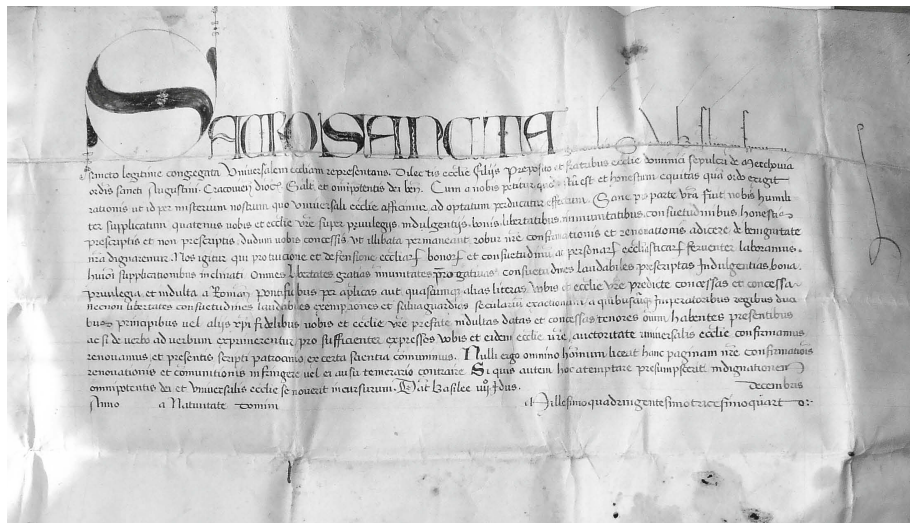 SACROSANCTA generalis Sinodus Basiliensis in spiritu
sancto legitime congregata Universalem eccliam representans. Dilectis ecclie filijs Preposito et fratribus ecclie dominici sepulcri de Mechouia
ordis sancti Augustini. Cracouien dioc. Salt et omipotentis dei ben. Cum a nobis petitur quod iustu est et honestum equitas qua ordo exigit
rationis ut id per misterium nostrum quo Universali ecclie afficimur ad optatum perducatur effectum. Sane pro parte vra fuit nobis humili
ter supplicatum quatenus uobis et ecclie vre super priuilegijs indulgentijs bonis libertatibus immunitatibus consuetudinibus honestis
prescriptis et non prescriptis dudum uobis concessis ut illibata permaneant robur nre confirmationis et renouationis adicere de benignitate
nra dignaremur. Nos igitur qui protectione et defensione eccliar bonor et consuetudinu ac personar eccliasticar feruenter laboramus.
huiusmodi supplicationibus inclinati. Omnes libertates gratias immunitates prerogatiuas consuetudines laudabiles prescriptas indulgentias bona
priuilegia et indulta a Roman Pontificibus per aplicas aut quascumque alias literas Vobis et ecclie vre predicte concessas et concessa
necnon libertates consuetudines laudabiles exempciones et saluaguardias seculariu exactionum a quibuscumque Imperatoribus regibus duci
bus principibus uel alijs xpi fidelibus uobis et ecclie vre prefate indultas datas et concessas tenores oium habentes presentibus
ac si de uerbo ad uerbum exprimerentur pro sufficienter expressos Vobis et eidem ecclie vre auctoritate uniuersalis ecclie confirmamus
renouamus et presentis scripti patrocinio ex certa scientia communimus. Nulli ergo omnino hominum liceat hanc paginam nre confirmationis
renouationis et comunitionis infringere uel ei ausu temerario contraire Si quis autem hoc atemptare presumpserit indignationem
omnipotentis dei et Uniuersalis ecclie se nouerit incursurum. Dat Basilee iiij Idus. Decembris
Anno a Natiuitate Domini Millesimoquadringentesimotricesimoquarto:.